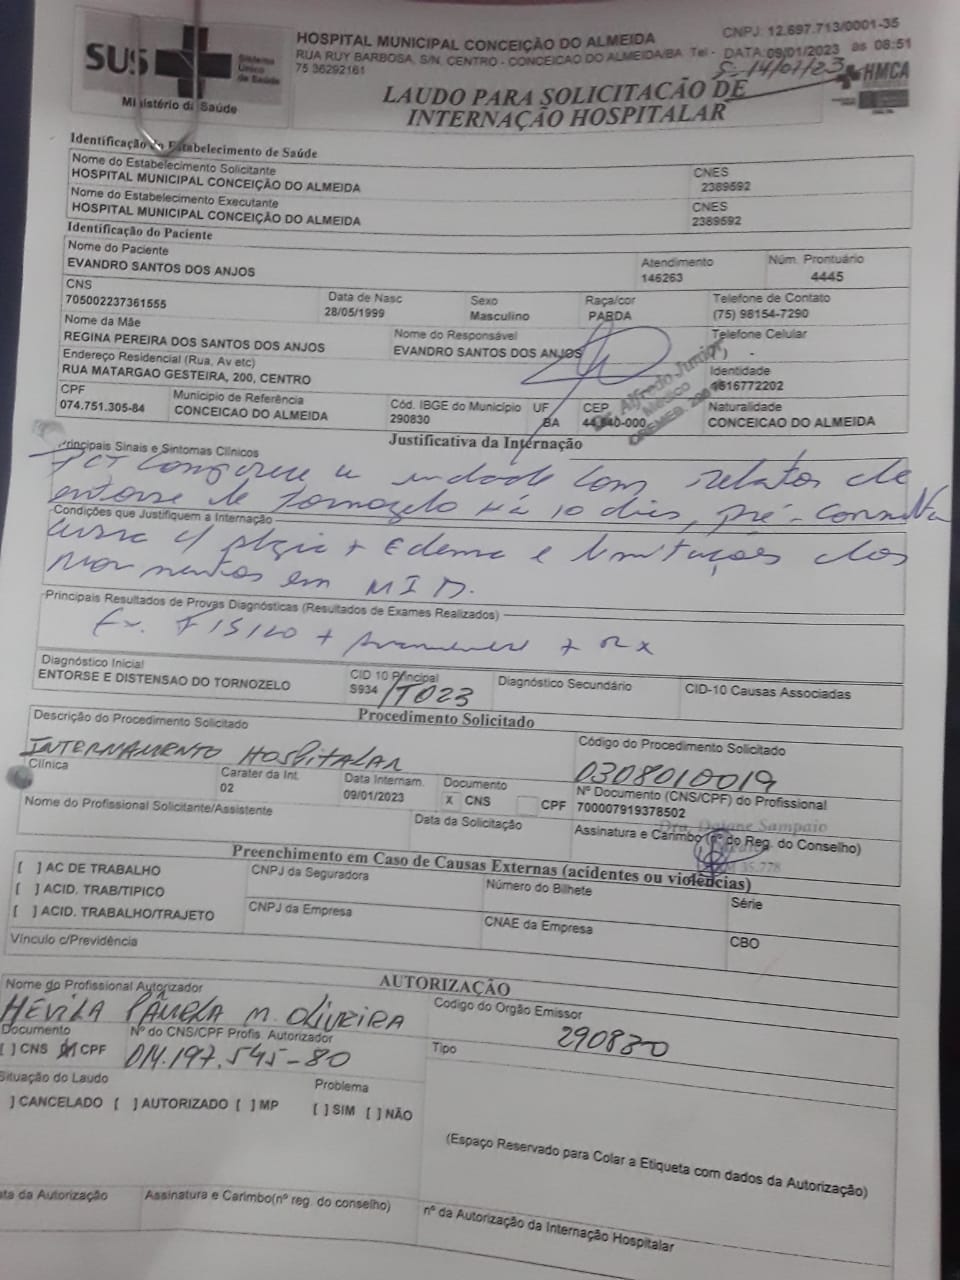 SUS
Sistema
Único
de Saúde
Ministério da Saúde
HOSPITAL MUNICIPAL CONCEIÇÃO DO ALMEIDA
CNPJ: 12.697.713/0001-35
RUA RUY BARBOSA, S/N, CENTRO - CONCEICAO DO ALMEIDA/BA Tel -
75 36292161
DATA:09/01/2023 às 08:51
S-14/01/23
HMCA
LAUDO PARA SOLICITACÃO DE
INTERNAÇÃO HOSPITALAR
Identificação do Estabelecimento de Saúde
Nome do Estabelecimento Solicitante
HOSPITAL MUNICIPAL CONCEIÇÃO DO ALMEIDA
CNES
2389592
Nome do Estabelecimento Executante
HOSPITAL MUNICIPAL CONCEIÇÃO DO ALMEIDA
CNES
2389592
Identificação do Paciente
Nome do Paciente
EVANDRO SANTOS DOS ANJOS
Atendimento
146263
Núm. Prontuário
4445
CNS
705002237361555
Data de Nasc
28/05/1999
Sexo
Masculino
Raça/cor
PARDA
Telefone de Contato
(75) 98154-7290
Nome da Mãe
REGINA PEREIRA DOS SANTOS DOS ANJOS
Nome do Responsável
EVANDRO SANTOS DOS ANJOS
Telefone Celular
) -
Endereço Residencial (Rua, Av etc)
RUA MATARGAO GESTEIRA, 200, CENTRO
Identidade
1616772202
CPF
074.751.305-84
Municipio de Referência
CONCEICAO DO ALMEIDA
Cód. IBGE do Município
290830
UF
BA
CEP
44.540-000
Naturalidade
CONCEICAO DO ALMEIDA
Dr. Alfredo Junior
Médico
CREMEB
Justificativa da Internação
Principais Sinais e Sintomas Clínicos
Pct comparece a unidade com relatos de
entorse de tornozelo há 10 dias, pré-consulta
Condições que Justifiquem a Internação
c/ algia + Edema e limitações dos
movimentos em MID.
Principais Resultados de Provas Diagnósticas (Resultados de Exames Realizados)
Ex. FISICO + + RX
Diagnóstico Inicial
ENTORSE E DISTENSAO DO TORNOZELO
CID 10 Principal
S934 /T023
Diagnóstico Secundário
CID-10 Causas Associadas
Procedimento Solicitado
Descrição do Procedimento Solicitado
INTERNAMENTO HOSPITALAR
Código do Procedimento Solicitado
0308010019
Clínica
Carater da Int.
02
Data Internam.
09/01/2023
Documento
X CNS CPF
Nº Documento (CNS/CPF) do Profissional
700007919378502
Nome do Profissional Solicitante/Assistente
Data da Solicitação
Assinatura e Carimbo (nº do Reg. do Conselho)
Dra. Daiane Sampaio
35.778
Preenchimento em Caso de Causas Externas (acidentes ou violências)
[ ] AC DE TRABALHO
[ ] ACID. TRAB/TIPICO
[ ] ACID. TRABALHO/TRAJETO
CNPJ da Seguradora
Número do Bilhete
Série
CNPJ da Empresa
CNAE da Empresa
CBO
Vínculo c/Previdência
AUTORIZAÇÃO
Nome do Profissional Autorizador
HÉVILA PÂMELA M. OLIVEIRA
Codigo do Orgão Emissor
290830
Documento
[ ] CNS [X] CPF
Nº do CNS/CPF Profis. Autorizador
014.197.545-80
Tipo
Situação do Laudo
] CANCELADO [ ] AUTORIZADO [ ] MP
Problema
[ ] SIM [ ] NÃO
(Espaço Reservado para Colar a Etiqueta com dados da Autorização)
ata da Autorização
Assinatura e Carimbo(nº reg. do conselho)
nº da Autorização da Internação Hospitalar